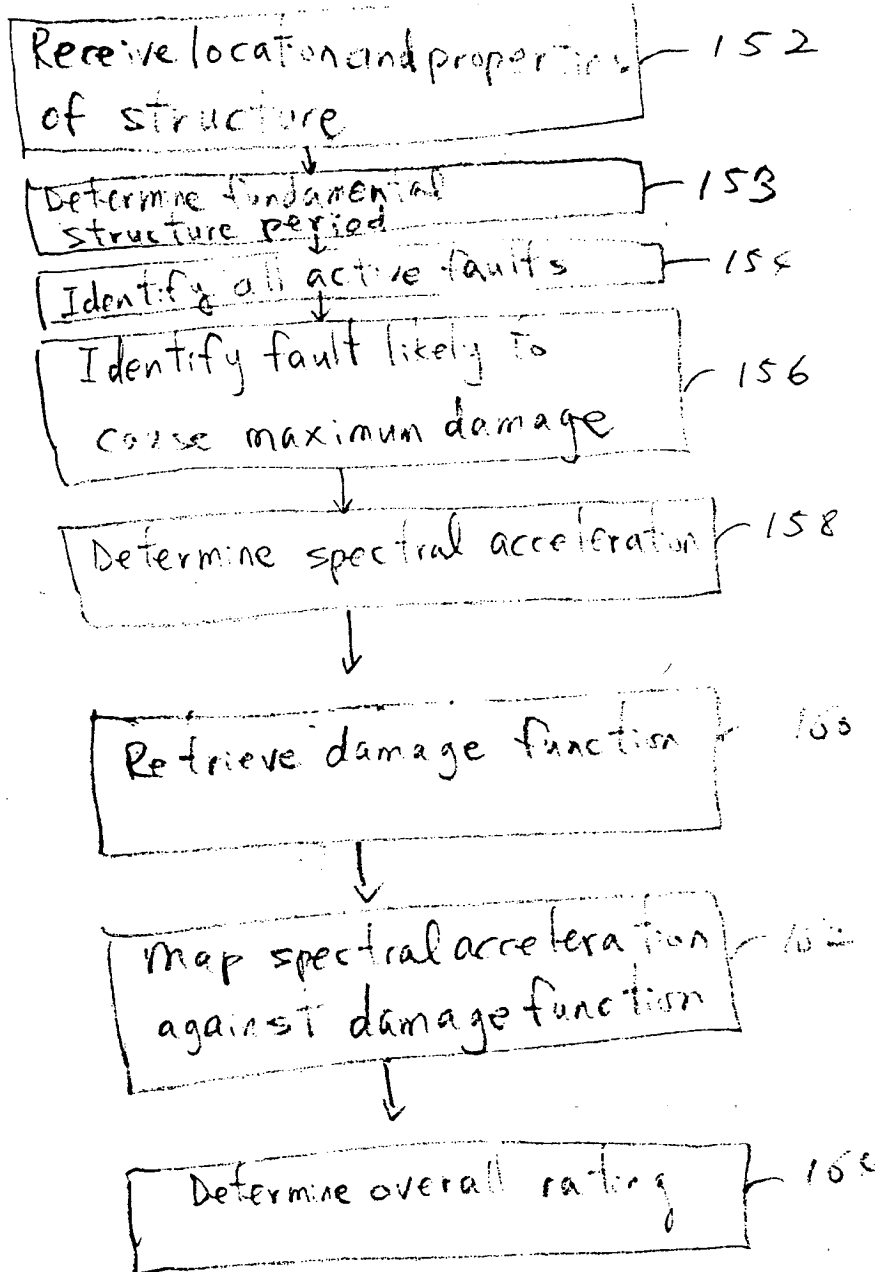 Receive location and properties 152
of structure
Determine fundamental 153
structure period
Identify all active faults 154
Identify fault likely to 156
cause maximun damage
Determine spectral acceleration 158
Retrieve damage function
Map spectral acceleration
against damage function
Determine overall rating